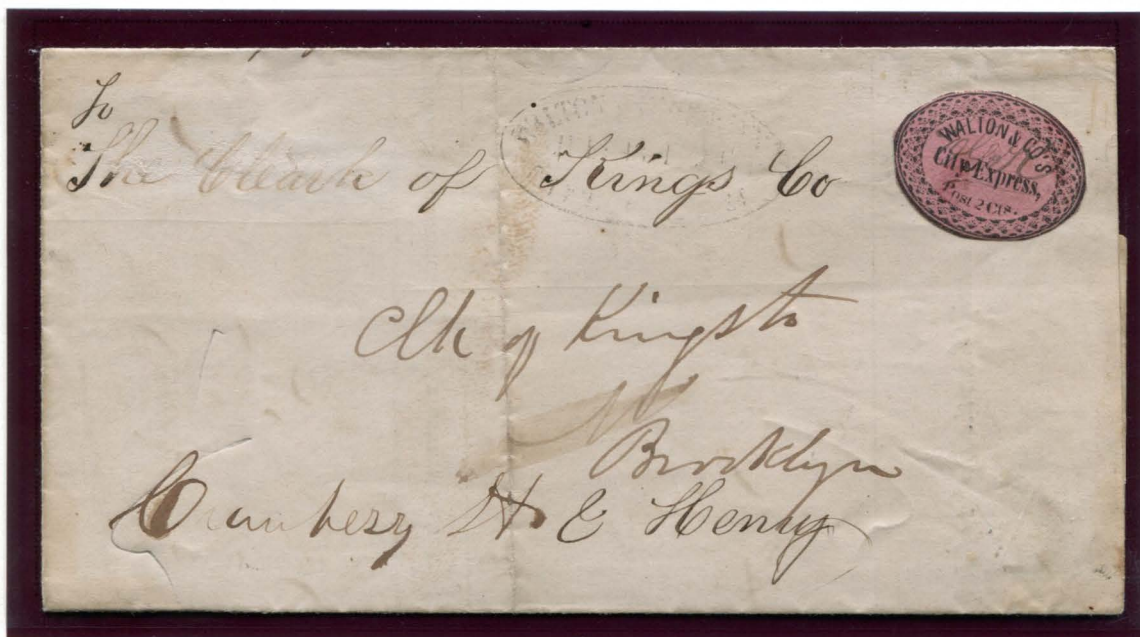 To
The Cleark of Kings Co
WALTON
WALTON & CO'S
City Express,
Post 2 Cts.
Clk of Kings
Brooklyn
Cranbery St & Henry